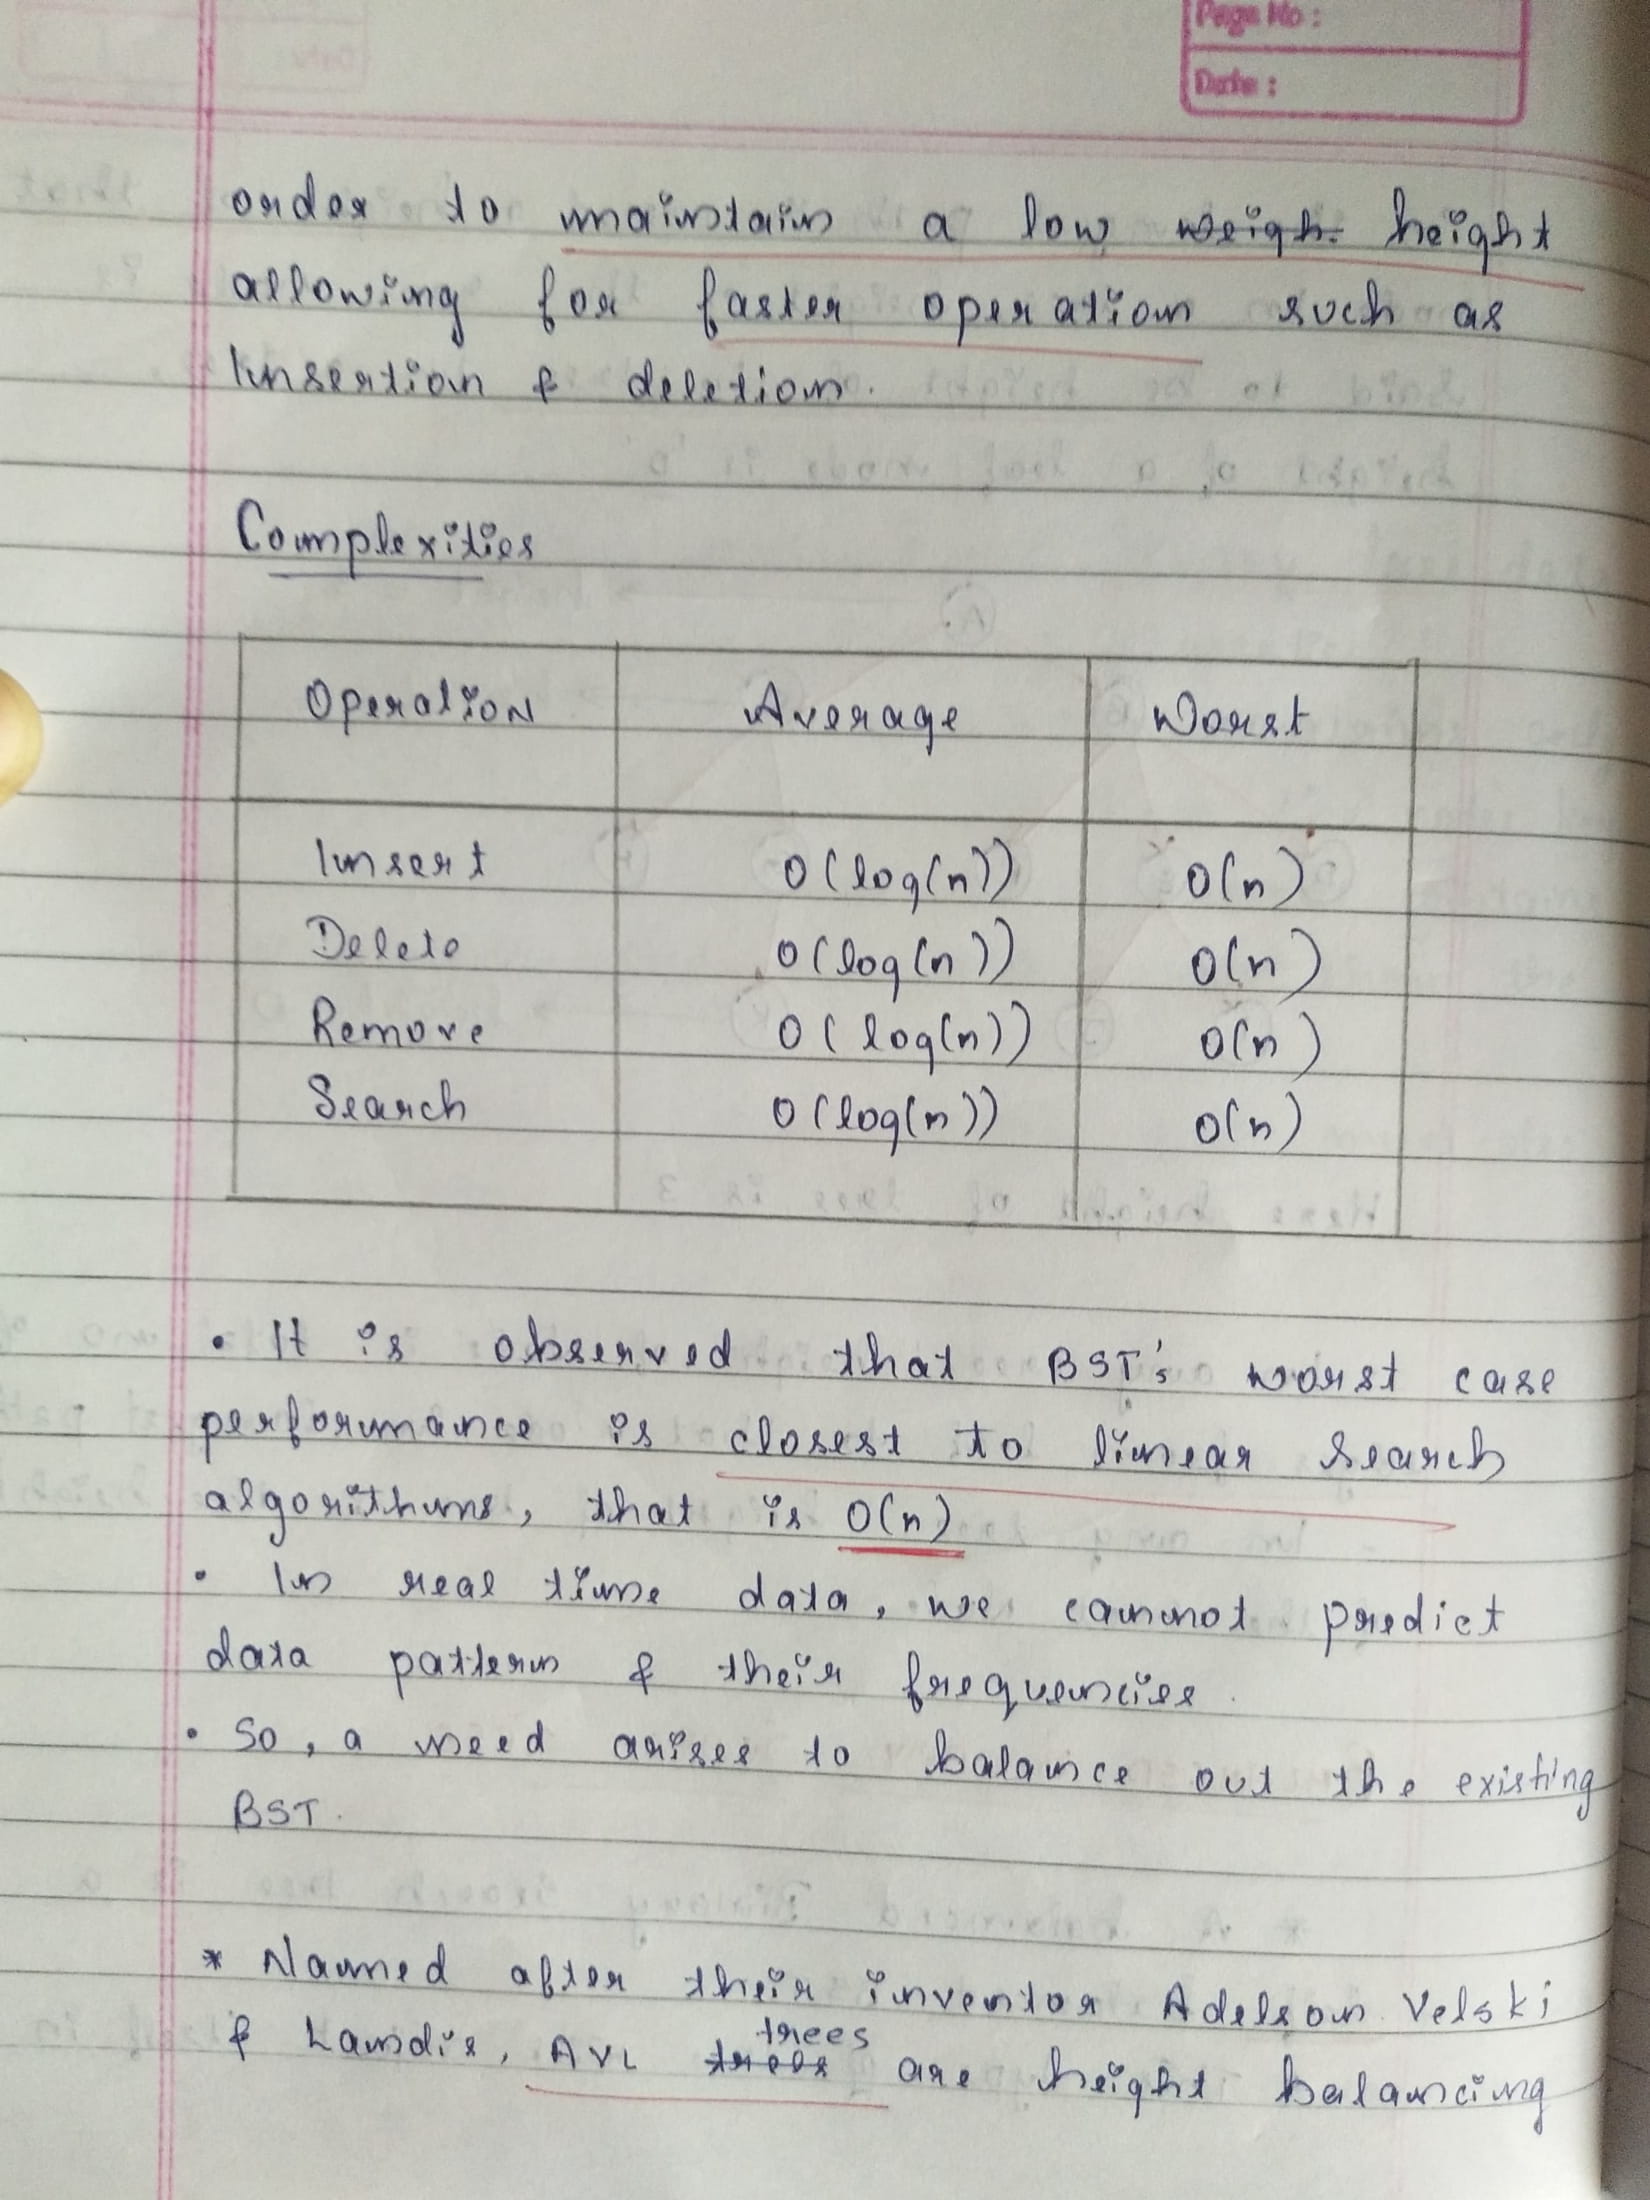 Page No :
Date :
order to maintain a low weigh. height
allowing for faster operation such as
Insertion & deletion.
Complexities
Operation Average Worst
Insert O(log(n)) O(n)
Delete O(log(n)) O(n)
Remove O(log(n)) O(n)
Search O(log(n)) O(n)
• It is observed that BST's worst case
performance is closest to linear search
algorithms, that is O(n)
• In real time data, we cannot predict
data pattern & their frequencies.
• So, a need arises to balance out the existing
BST.
* Named after their inventor Adelson Velski
& Landis, AVL trees trees are height balancing